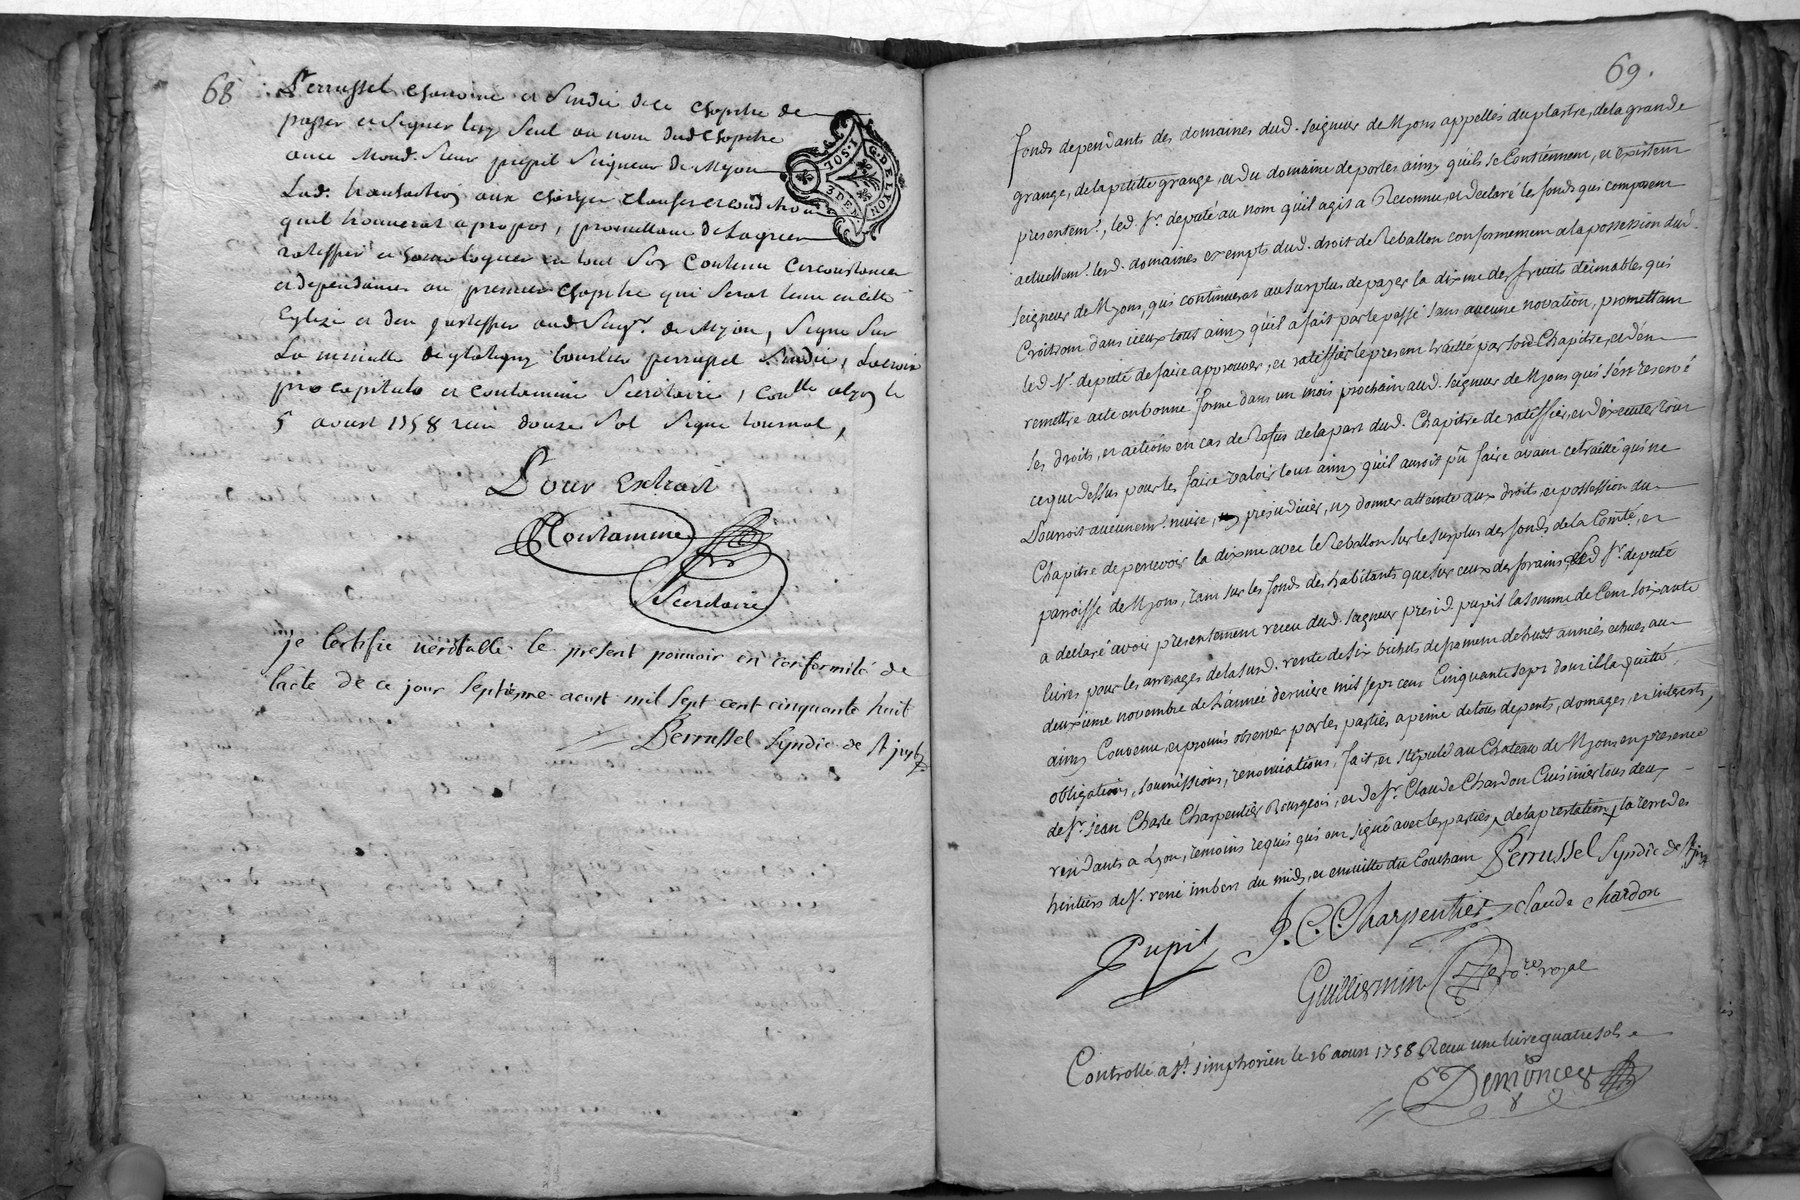 68
Perrussel chanoine et sindic dece chapitre de
passer et signer luy seul au nom dud chapitre
avec Mond. sieur pupil seigneur de Myon
Lad. transaction aux charges clauses et conditions
quil trouverat apropos, promettant de Lagreer
ratiffier et homologuer en tout son contenu circonstances
et dependances au premier chapitre qui serat tenu en cette
Eglize et den justiffier aud. Seigr. de Myon, signe sur
La minutte bourlier perrussel sindic, Lacroix
pro capitulo et contamine secretaire, conlle a lyon le
5 aoust 1758 reçu douze sol signe tournal,
Pour extrait
Contamine
Secretaire
G. DE LYON
1. SOL.
3 DEN.
je certifie veritable le present pouvoir en conformité de
lacte de ce jour septieme aoust mil sept cent cinquante huit
Perrussel syndic de st just
69.
fonds dependants des domaines dud. seigneur de Myons appellés du plastre, de la grande
grange, de la petitte grange, et du domaine de portes ainsy quils se Contiennent, et existent
presentemt., led. sr. deputé au nom quil agit a Reconnu, et declaré les fonds qui composent
actuellemt. lesd. domaines exempts dud. droit de Reballon conformement a la possession dud.
seigneur de Myons, qui continuerat au surplus de payer la disme des fruits deimables qui
Croitront dans iceux tout ainsy quil a fait par le passé sans aucune novation, promettant
led sr. deputé de faire approuver, et ratiffier le present traitté par sond. Chapitre, et d'en
remettre acte en bonne forme dans un mois prochain aud. seigneur de Myons qui s'est reservé
ses droits, et actions en cas de Refus de la part dud. Chapitre de ratiffier, et d'executer tout
ce que dessus pour les faire valoir tout ainsy quil auroit pû faire avant ce traitté qui ne
Pourroit aucunemt. nuire, ny prejudicier, ny donner atteinte aux droits, et possession du
Chapitre de percevoir la disme avec le Reballon sur le surplus des fonds de la Comté, et
parroisse de Myons, tant sur les fonds des habitants que sur ceux des forains Led sr. deputé
a declaré avoir presentement receu dud. seigneur presid. pupil la somme de Cent soixante
livres pour les arrerages de la susd. rente de six bichets de froment de huit années echues au
deuxieme novembre de L'année derniere mil sept cent Cinquante sept dont il la quitté,
ainsy Convenu, et promis observer par les parties a peine de tous depents, domages, et interests,
obligations, soumissions, renonciations, fait, et stipulé au Chateau de Myons en presence
de sr. jean Charle Charpentier Bourgeois, et de sr. Claude Chardon Cuisinier tous deux
residants a Lyon, temoins requis qui ont signé avec les parties, de la prestation, la terre des
heritiers de sr. rené imbert du midy, et ensuitte du Couchant Perrussel syndic de st just
Pupil J. C. Charpentier Claude Chardon
Guilliermin no.re royal
Controllé a st. simphorien le 16 aoust 1758 Receu une livre quatre sols
Demonceey